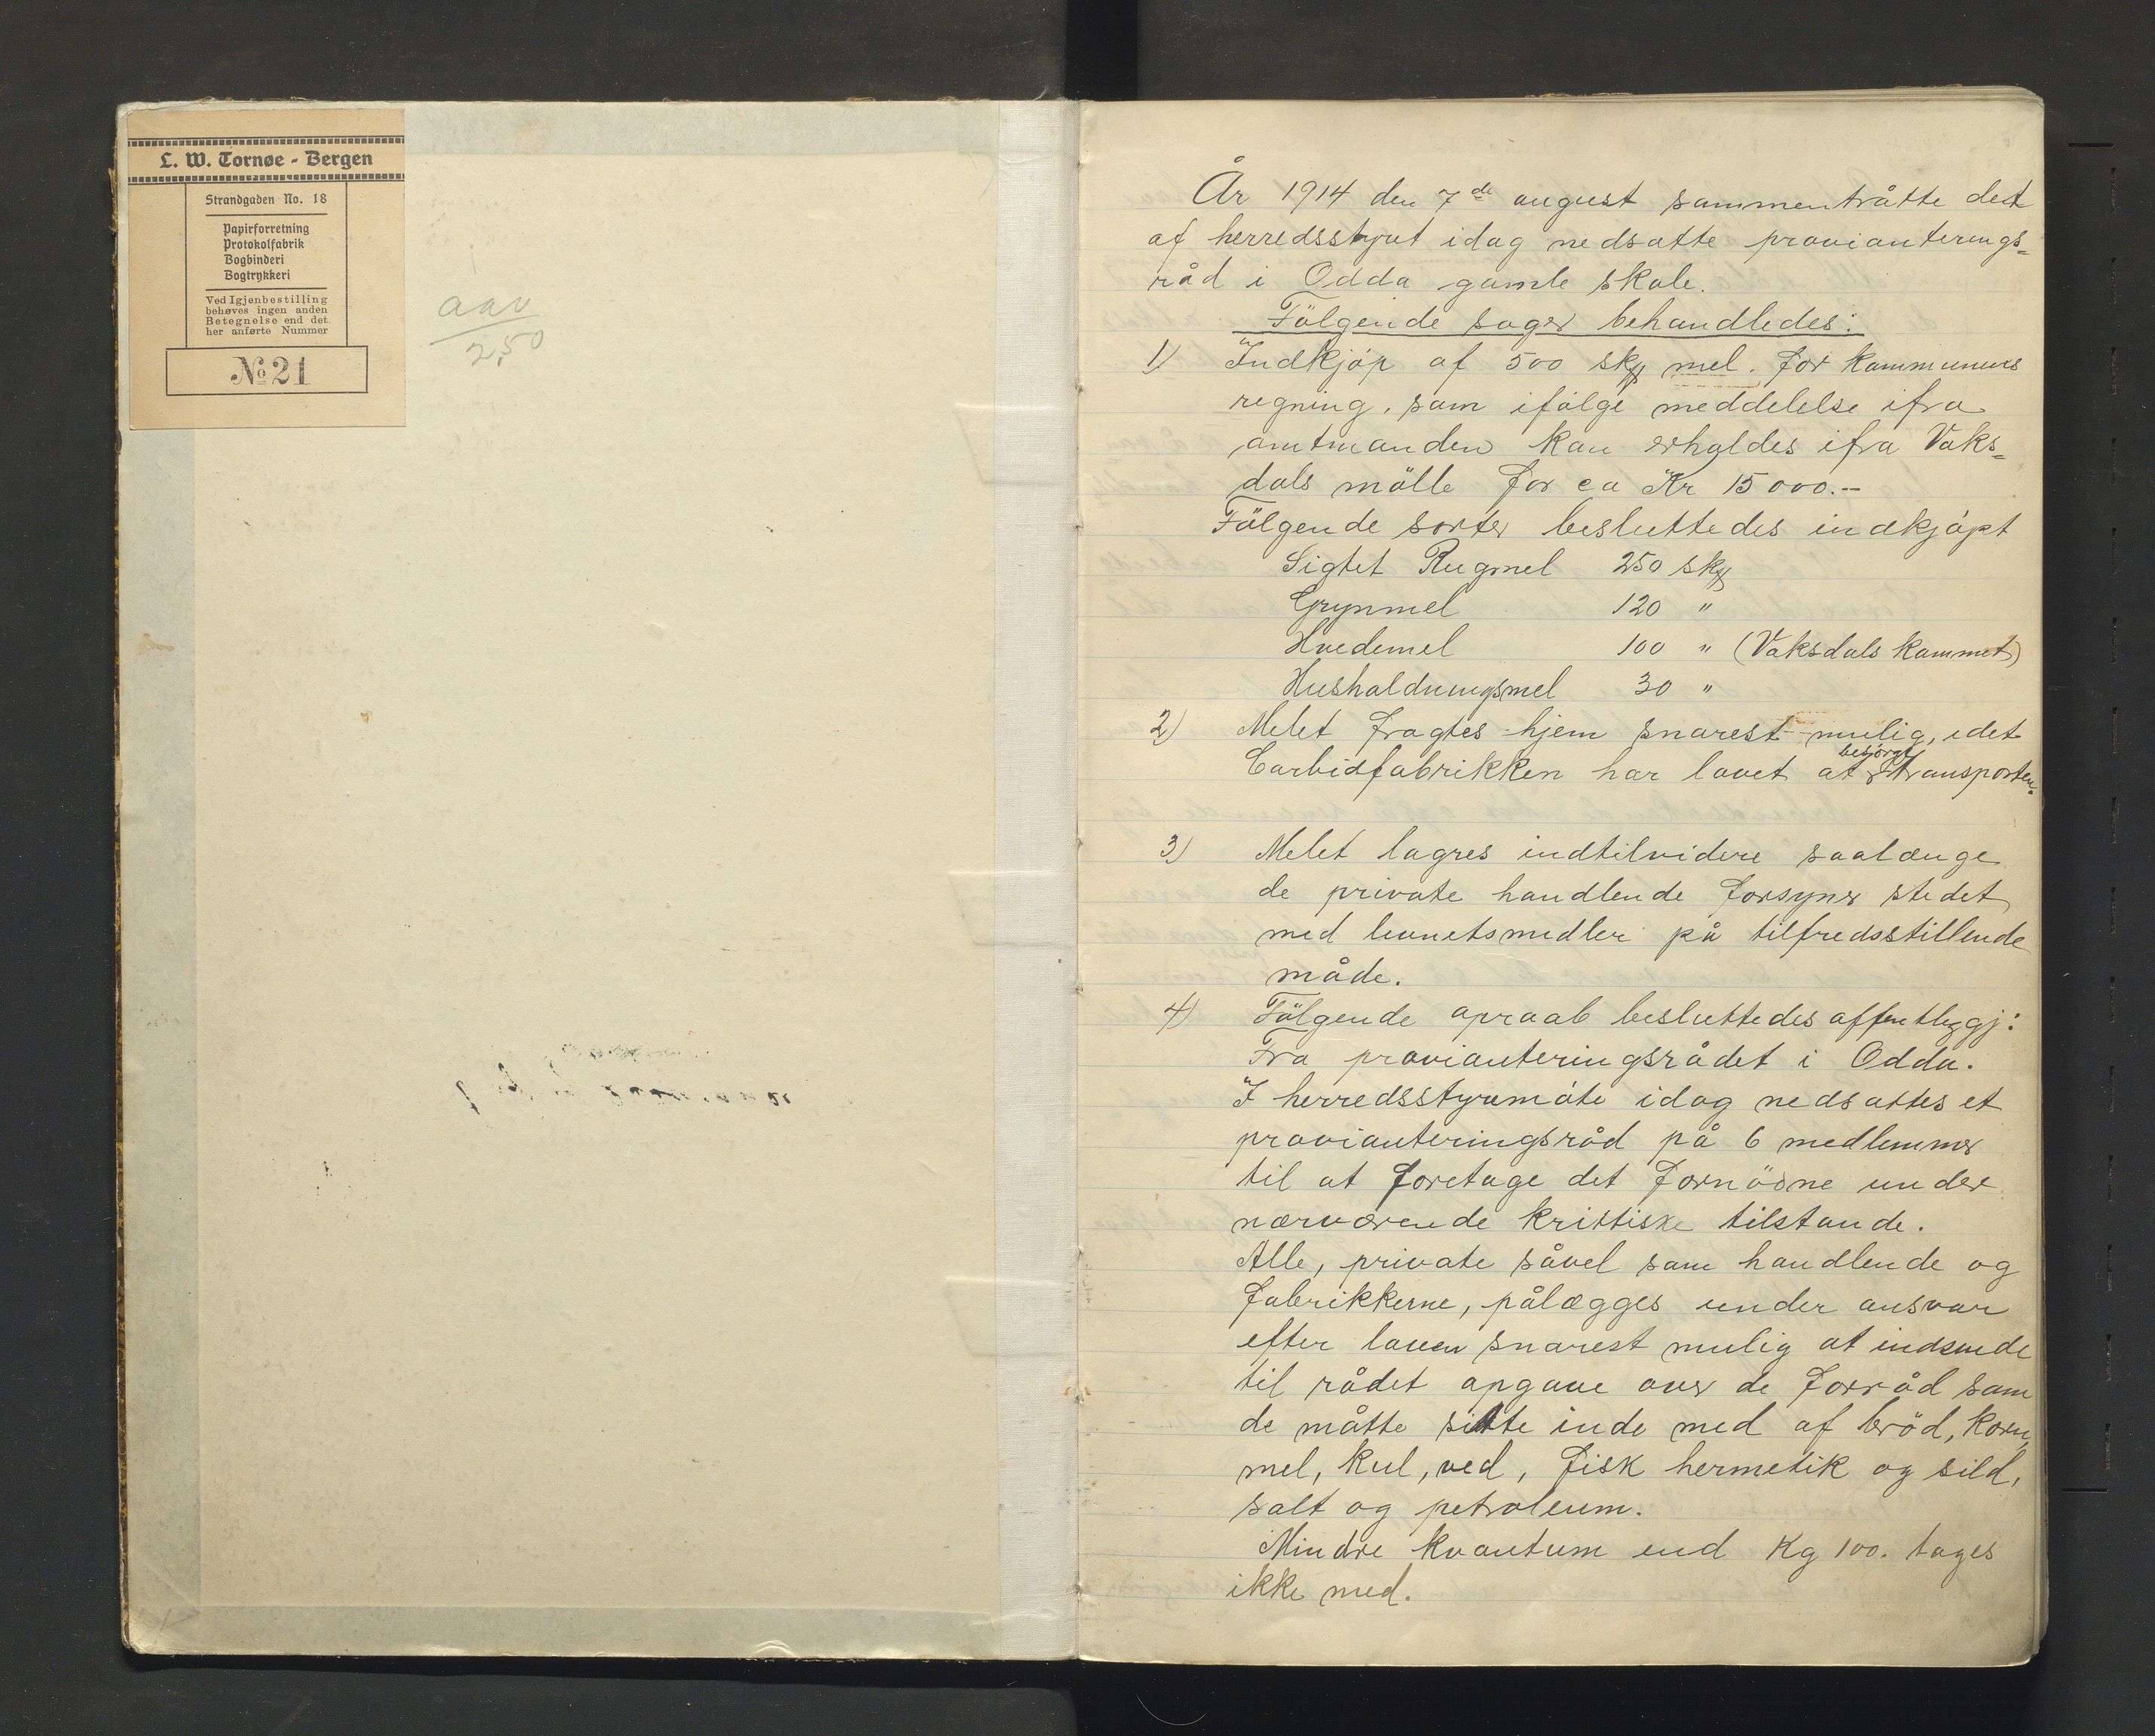 L. W. Tornøe - Bergen
Strandgaden No. 18
Papirforretning
Protokolfabrik
Bogbinderi
Bogtrykkeri
Ved Igjenbestilling
behøves ingen anden
Betegnelse end det
her anførte Nummer
№ 21
aav
2,50
År 1914 den 7de august sammentråtte det
af herredsstyret idag nedsatte provianterings=
råd i Odda gamle skole.
Fölgende sager behandledes:
1) Indkjöp af 500 skg mel. for kommunens
regning, som ifölge meddelelse ifra
amtmanden kan erholdes ifra Vaks=
dals mölle for ca Kr 15000.-
Fölgende sorter besluttedes indkjöpt
Sigtet Rugmel 250 skg
Grynmel 120 "
Hvedemel 100 " (Vaksdals kammet)
Husholdningsmel 30 "
2) Melet fragtes hjem snarest mulig, idet
Carbidfabrikken har lovet at besörge transporten.
3) Melet lagres indtilvidere saalænge
de private handlende forsyner stedet
med levnetsmedler på tilfredsstillende
måde.
4) Fölgende opraab besluttedes offentleggj:
Fra provianteringsrådet i Odda.
I herredsstyremöte idag nedsattes et
provianteringsråd på 6 medlemmer
til at foretage det fornödne under
nærværende kritiske tilstande.
Alle, private såvel som handlende og
fabrikkerne, pålægges under ansvar
efter loven snarest mulig at indsende
til rådet opgave over de forråd som
de måtte sitte inde med af bröd, korn,
mel, kul, ved, fisk hermetik og sild,
salt og petroleum.
Mindre kvantum end Kg 100. tages
ikke med.